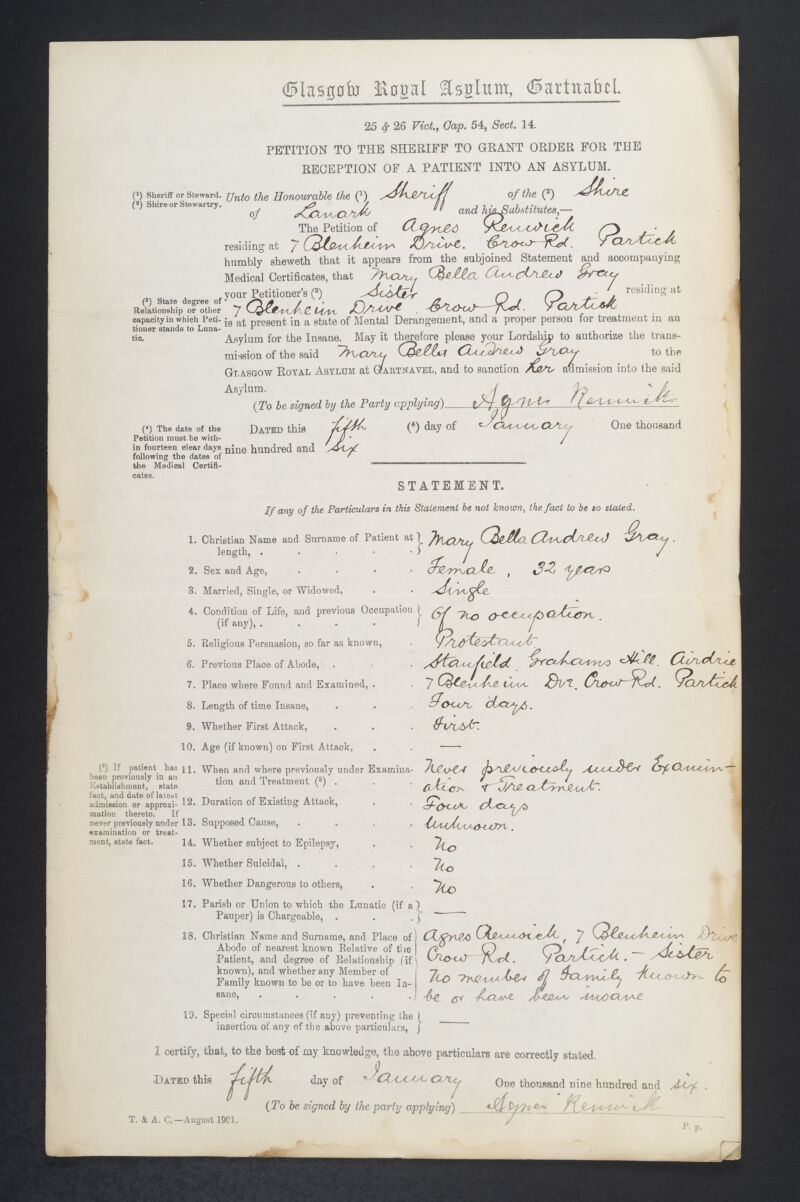 Glasgow Royal Asylum, Gartnavel.
25 & 26 Vict., Cap. 54, Sect. 14.
PETITION TO THE SHERIFF TO GRANT ORDER FOR THE
RECEPTION OF A PATIENT INTO AN ASYLUM.
(1) Sheriff or Steward.
(2) Shire or Stewartry.
Unto the Honourable the (1) Sheriff of the (2) Shire
of Lanark and his Substitutes,—
The Petition of Agnes Renwick
residing at 7 Blenheim Drive. Crow Rd. Partick
humbly sheweth that it appears from the subjoined Statement and accompanying
Medical Certificates, that Mary Bella Andrew Gray
(3) State degree of
Relationship or other
capacity in which Peti-
tioner stands to Luna-
tic.
your Petitioner's (3) Sister residing at
7 Blenheim Drive. Crow Rd. Partick
is at present in a state of Mental Derangement, and a proper person for treatment in an
Asylum for the Insane. May it therefore please your Lordship to authorize the trans-
mission of the said Mary Bella Andrew Gray to the
GLASGOW ROYAL ASYLUM at GARTNAVEL, and to sanction her admission into the said
Asylum.
(To be signed by the Party applying) Agnes Renwick
(4) The date of the
Petition must be with-
in fourteen clear days
following the dates of
the Medical Certifi-
cates.
DATED this fifth (4) day of January One thousand
nine hundred and six
STATEMENT.
If any of the Particulars in this Statement be not known, the fact to be so stated.
1. Christian Name and Surname of Patient at
length, . . . . . Mary Bella Andrew Gray.
2. Sex and Age, . . . . Female, 32 years
3. Married, Single, or Widowed, . . Single
4. Condition of Life, and previous Occupation
(if any), . . . . Of no occupation.
5. Religious Persuasion, so far as known, . Protestant
6. Previous Place of Abode, . . . Stanfield. Grahams Hill. Airdrie
7. Place where Found and Examined, . . 7 Blenheim Dve. Crow Rd. Partick
8. Length of time Insane, . . . Four days.
9. Whether First Attack, . . . First.
10. Age (if known) on First Attack, . . —
(5) If patient has
been previously in an
Establishment, state
fact, and date of latest
admission or approxi-
mation thereto. If
never previously under
examination or treat-
ment, state fact.
11. When and where previously under Examina- Never previously under Examin-
tion and Treatment (5) . . . ation & Treatment.
12. Duration of Existing Attack, . . Four days
13. Supposed Cause, . . . . Unknown.
14. Whether subject to Epilepsy, . . No
15. Whether Suicidal, . . . . No
16. Whether Dangerous to others, . . No
17. Parish or Union to which the Lunatic (if a
Pauper) is Chargeable, . . . —
18. Christian Name and Surname, and Place of Agnes Renwick, 7 Blenheim Drive
Abode of nearest known Relative of the Crow Rd. Partick. — Sister
Patient, and degree of Relationship (if
known), and whether any Member of No member of family known to
Family known to be or to have been In- be or have been insane
sane, . . . . .
19. Special circumstances (if any) preventing the
insertion of any of the above particulars, —
I certify, that, to the best of my knowledge, the above particulars are correctly stated.
DATED this fifth day of January One thousand nine hundred and six.
(To be signed by the party applying) Agnes Renwick
T. & A. C.—August 1901.
P. p.